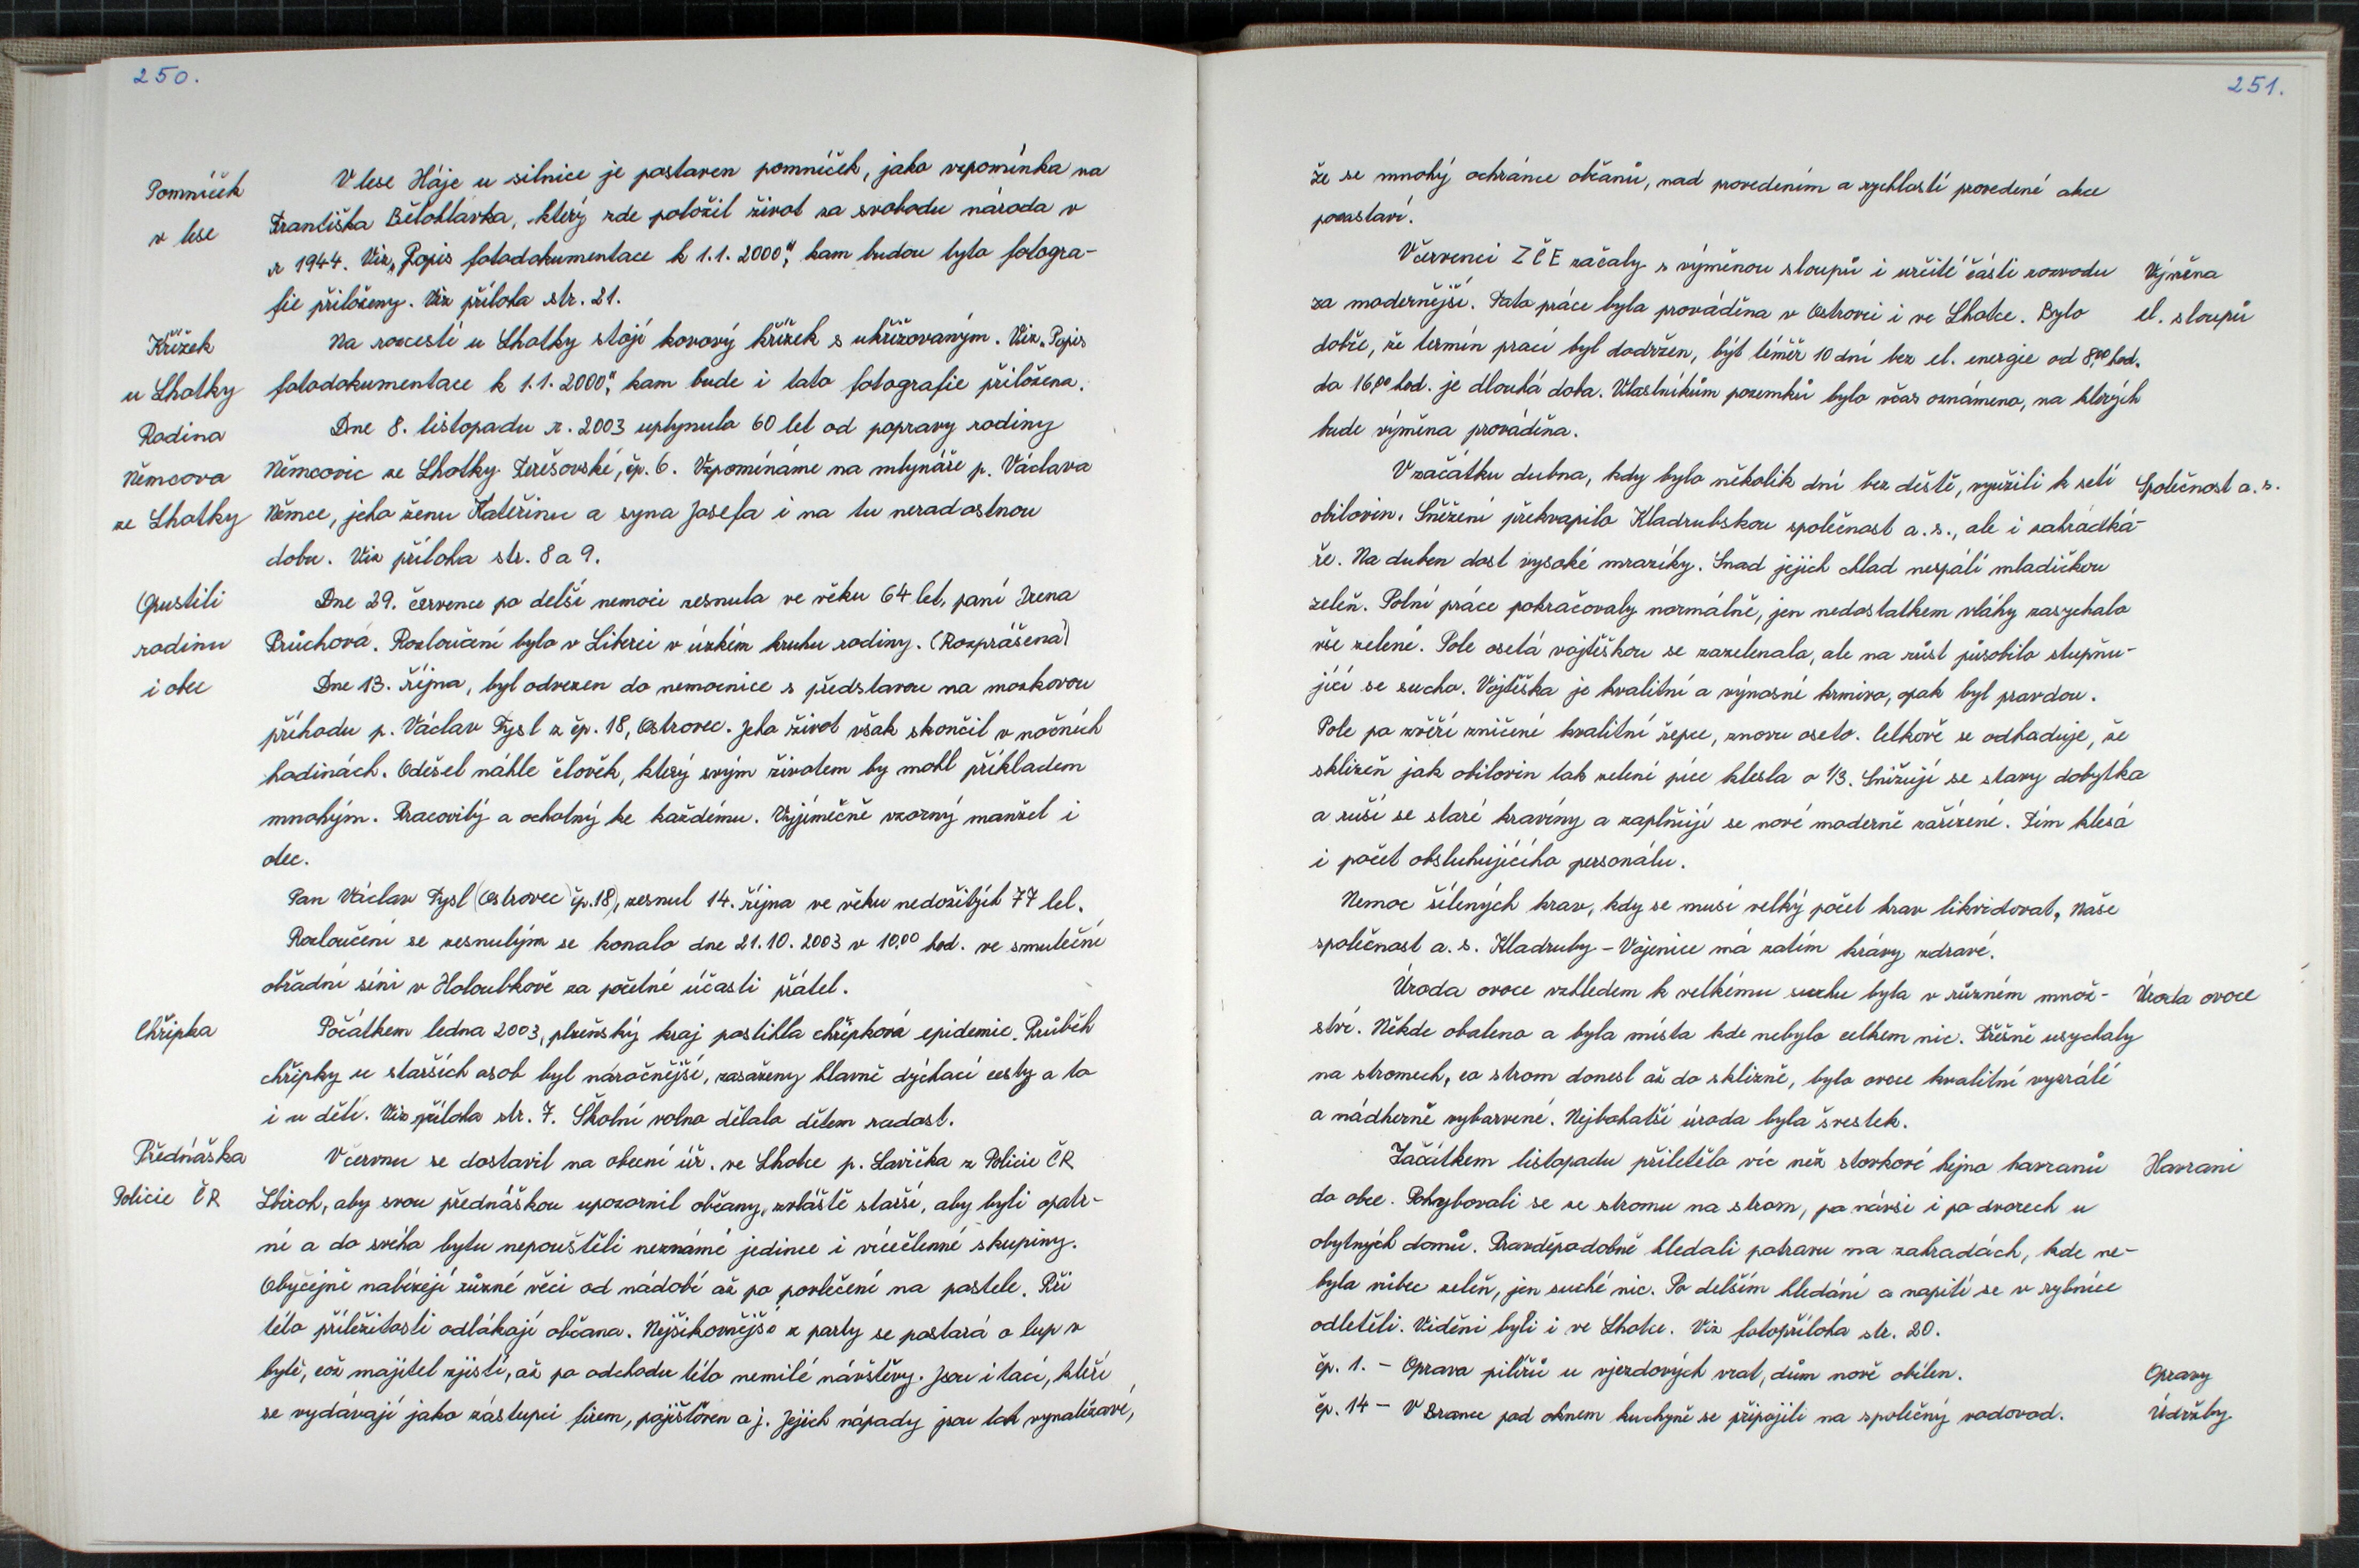 250.
Pomníček V lese Háje u silnice je postaven pomníček, jako vzpomínka na
v lese Františka Bělohlávka, který zde položil život za svobodu národa v
r 1944. Viz „Popis fotodokumentace k 1.1. 2000", kam budou tyto fotogra-
fie přiloženy. Viz příloha str. 21.
Křížek Na rozcestí u Lhotky stojí kovový křížek s ukřižovaným. Viz „Popis
u Lhotky fotodokumentace k 1.1. 2000", kam bude i tato fotografie přiložena.
Rodina Dne 8. listopadu r. 2003 uplynula 60 let od popravy rodiny
Němcova Němcovic ze Lhotky Terešovské, čp. 6. Vzpomínáme na mlynáře p. Václava
ze Lhotky Němce, jeho ženu Kateřinu a syna Josefa i na tu neradostnou
dobu. Viz příloha str. 8 a 9.
Opustili Dne 29. července po delší nemoci zesnula ve věku 64 let, paní Irena
rodinu Průchová. Rozloučení bylo v Liberci v úzkém kruhu rodiny. (Rozprášena)
i obec Dne 13. října, byl odvezen do nemocnice s představou na mozkovou
příhodu p. Václav Tysl z čp. 18, Ostrovec. Jeho život však skončil v nočních
hodinách. Odešel náhle člověk, který svým životem by mohl příkladem
mnohým. Pracovitý a ochotný ke každému. Vyjímečně vzorný manžel i
otec.
Pan Václav Tysl (Ostrovec čp.18), zesnul 14. října ve věku nedožitých 77 let.
Rozloučení se zesnulým se konalo dne 21.10. 2003 v 10.00 hod. ve smuteční
obřadní síni v Holoubkově za početné účasti přátel.
Chřipka Počátkem ledna 2003, plzeňský kraj postihla chřipková epidemie. Průběh
chřipky u starších osob byl náročnější, zasaženy hlavně dýchací cesty a to
i u dětí. Viz příloha str. 7. Školní volno dělalo dětem radost.
Přednáška V červnu se dostavil na obecní úř. ve Lhotce p. Lavička z Policie ČR
Policie ČR Zbiroh, aby svou přednáškou upozornil občany, zvláště starší, aby byli opatr-
ní a do svého bytu nepouštěli neznámé jedince i vícečlenné skupiny.
Obyčejně nabízejí různé věci od nádobí až po povlečení na postele. Při
této příležitosti odlákají občana. Nejšikovnější z party se postará o lup v
bytě, což majitel zjistí, až po odchodu této nemilé návštěvy. Jsou i tací, kteří
se vydávají jako zástupci firem, pojišťoven a j. Jejich nápady jsou tak vynalézavé,
251.
že se mnohý ochránce občanů, nad provedením a rychlostí provedené akce
pozastaví.
V červenci ZČE začaly s výměnou sloupů i určité části rozvodu Výměna
za modernější. Tato práce byla prováděna v Ostrovci i ve Lhotce. Bylo el. sloupů
dobře, že termín prací byl dodržen, být téměř 10 dní bez el. energie od 8.00 hod.
do 16.00 hod. je dlouhá doba. Vlastníkům pozemků bylo včas oznámeno, na kterých
bude výměna prováděna.
V začátku dubna, kdy bylo několik dní bez deště, využili k setí Společnost a. s.
obilovin. Sněžení překvapilo Kladrubskou společnost a. s., ale i zahrádká-
ře. Na duben dost vysoké mrazíky. Snad jejich chlad nespálí mladičkou
zeleň. Polní práce pokračovaly normálně, jen nedostatkem vláhy zasychalo
vše zelené. Pole osetá vojtěškou se zazelenala, ale na růst působilo stupňu-
jící se sucho. Vojtěška je kvalitní a výnosné krmivo, opak byl pravdou.
Pole po zvěří zničené kvalitní řepce, znovu oseto. Celkově se odhaduje, že
sklizeň jak obilovin tak zelené píce klesla o 1/3. Snižují se stavy dobytka
a ruší se staré kravíny a zaplňují se nové moderně zařízené. Tím klesá
i počet obsluhujícího personálu.
Nemoc šílených krav, kdy se musí velký počet krav likvidovat, Naše
společnost a. s. Kladruby - Vojenice má zatím krávy zdravé.
Úroda ovoce vzhledem k velkému suchu byla v různém množ- Úroda ovoce
ství. Někde obaleno a byla místa kde nebylo celkem nic. Třešně usychaly
na stromech, co strom donesl až do sklizně, bylo ovoce kvalitní vyzrálé
a nádherně vybarvené. Nejbohatší úroda byla švestek.
Začátkem listopadu přiletělo víc než stovkové hejno havranů Havrani
do obce. Pohybovali se ze stromu na strom, po návsi i po dvorech u
obytných domů. Pravděpodobně hledali potravu na zahradách, kde ne-
byla vůbec zeleň, jen suché nic. Po delším hledání a napití se v rybníce
odletěli. Viděni byli i ve Lhotce. Viz fotopříloha str. 20.
čp. 1. - Oprava pilířů u vjezdových vrat, dům nově obílen. Opravy
čp. 14 - V Brance pod oknem kuchyně se připojili na společný vodovod. Údržby